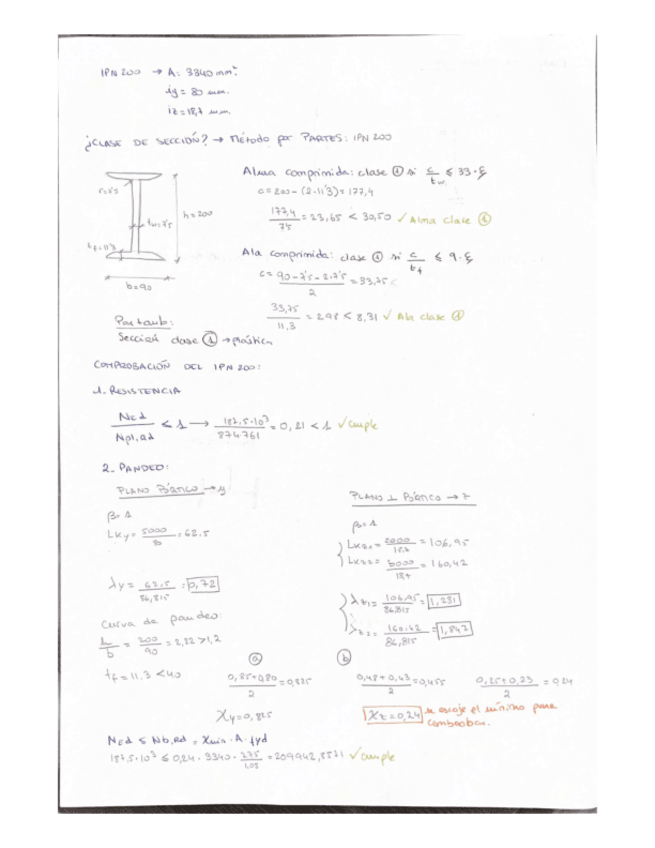 IPN 200 → A = 3340 mm².
iy = 80 mm.
iz = 18,7 mm.
¿CLASE DE SECCIÓN? → Método por PARTES: IPN 200
Alma comprimida: clase ① si c/tw ≤ 33·ξ
c = 200 - (2·11'3) = 177,4
177,4/7'5 = 23,65 < 30,50 ✓ Alma clase ①
r=7'5
tw=7'5
h=200
tf=11'3
b=90
Ala comprimida: clase ① si c/tf ≤ 9·ξ
c = (90-7'5-2·7'5)/2 = 33,75
33,75/11,3 = 2,98 < 8,31 ✓ Ala clase ①
Por tanto:
Sección clase ① → plástica
COMPROBACIÓN DEL IPN 200:
1. RESISTENCIA
Ned/Npl,rd ≤ 1 → 187,5·10³/874761 = 0,21 < 1 ✓ Cumple
2. PANDEO:
PLANO PÓRTICO → y
β = 1
Lky = 5000/80 = 62.5
λy = 62,5/86,815 = 0,72
Curva de pandeo:
h/b = 200/90 = 2,22 > 1,2
tf = 11.3 < 40
ⓐ
(0,85+0,80)/2 = 0,825
χy = 0,825
PLANO ⊥ PÓRTICO → z
β = 1
Lkz1 = 2000/18,7 = 106,95
Lkz2 = 3000/18,7 = 160,42
λz1 = 106,95/86,815 = 1,231
λz2 = 160,42/86,815 = 1,847
ⓑ
(0,48+0,43)/2 = 0,455
(0,25+0,23)/2 = 0,24
χz = 0,24 se escoje el mínimo para comprobar.
Ned ≤ Nb,rd = χmin · A · fyd
187,5·10³ ≤ 0,24 · 3340 · 275/1,05 = 209942,8571 ✓ Cumple